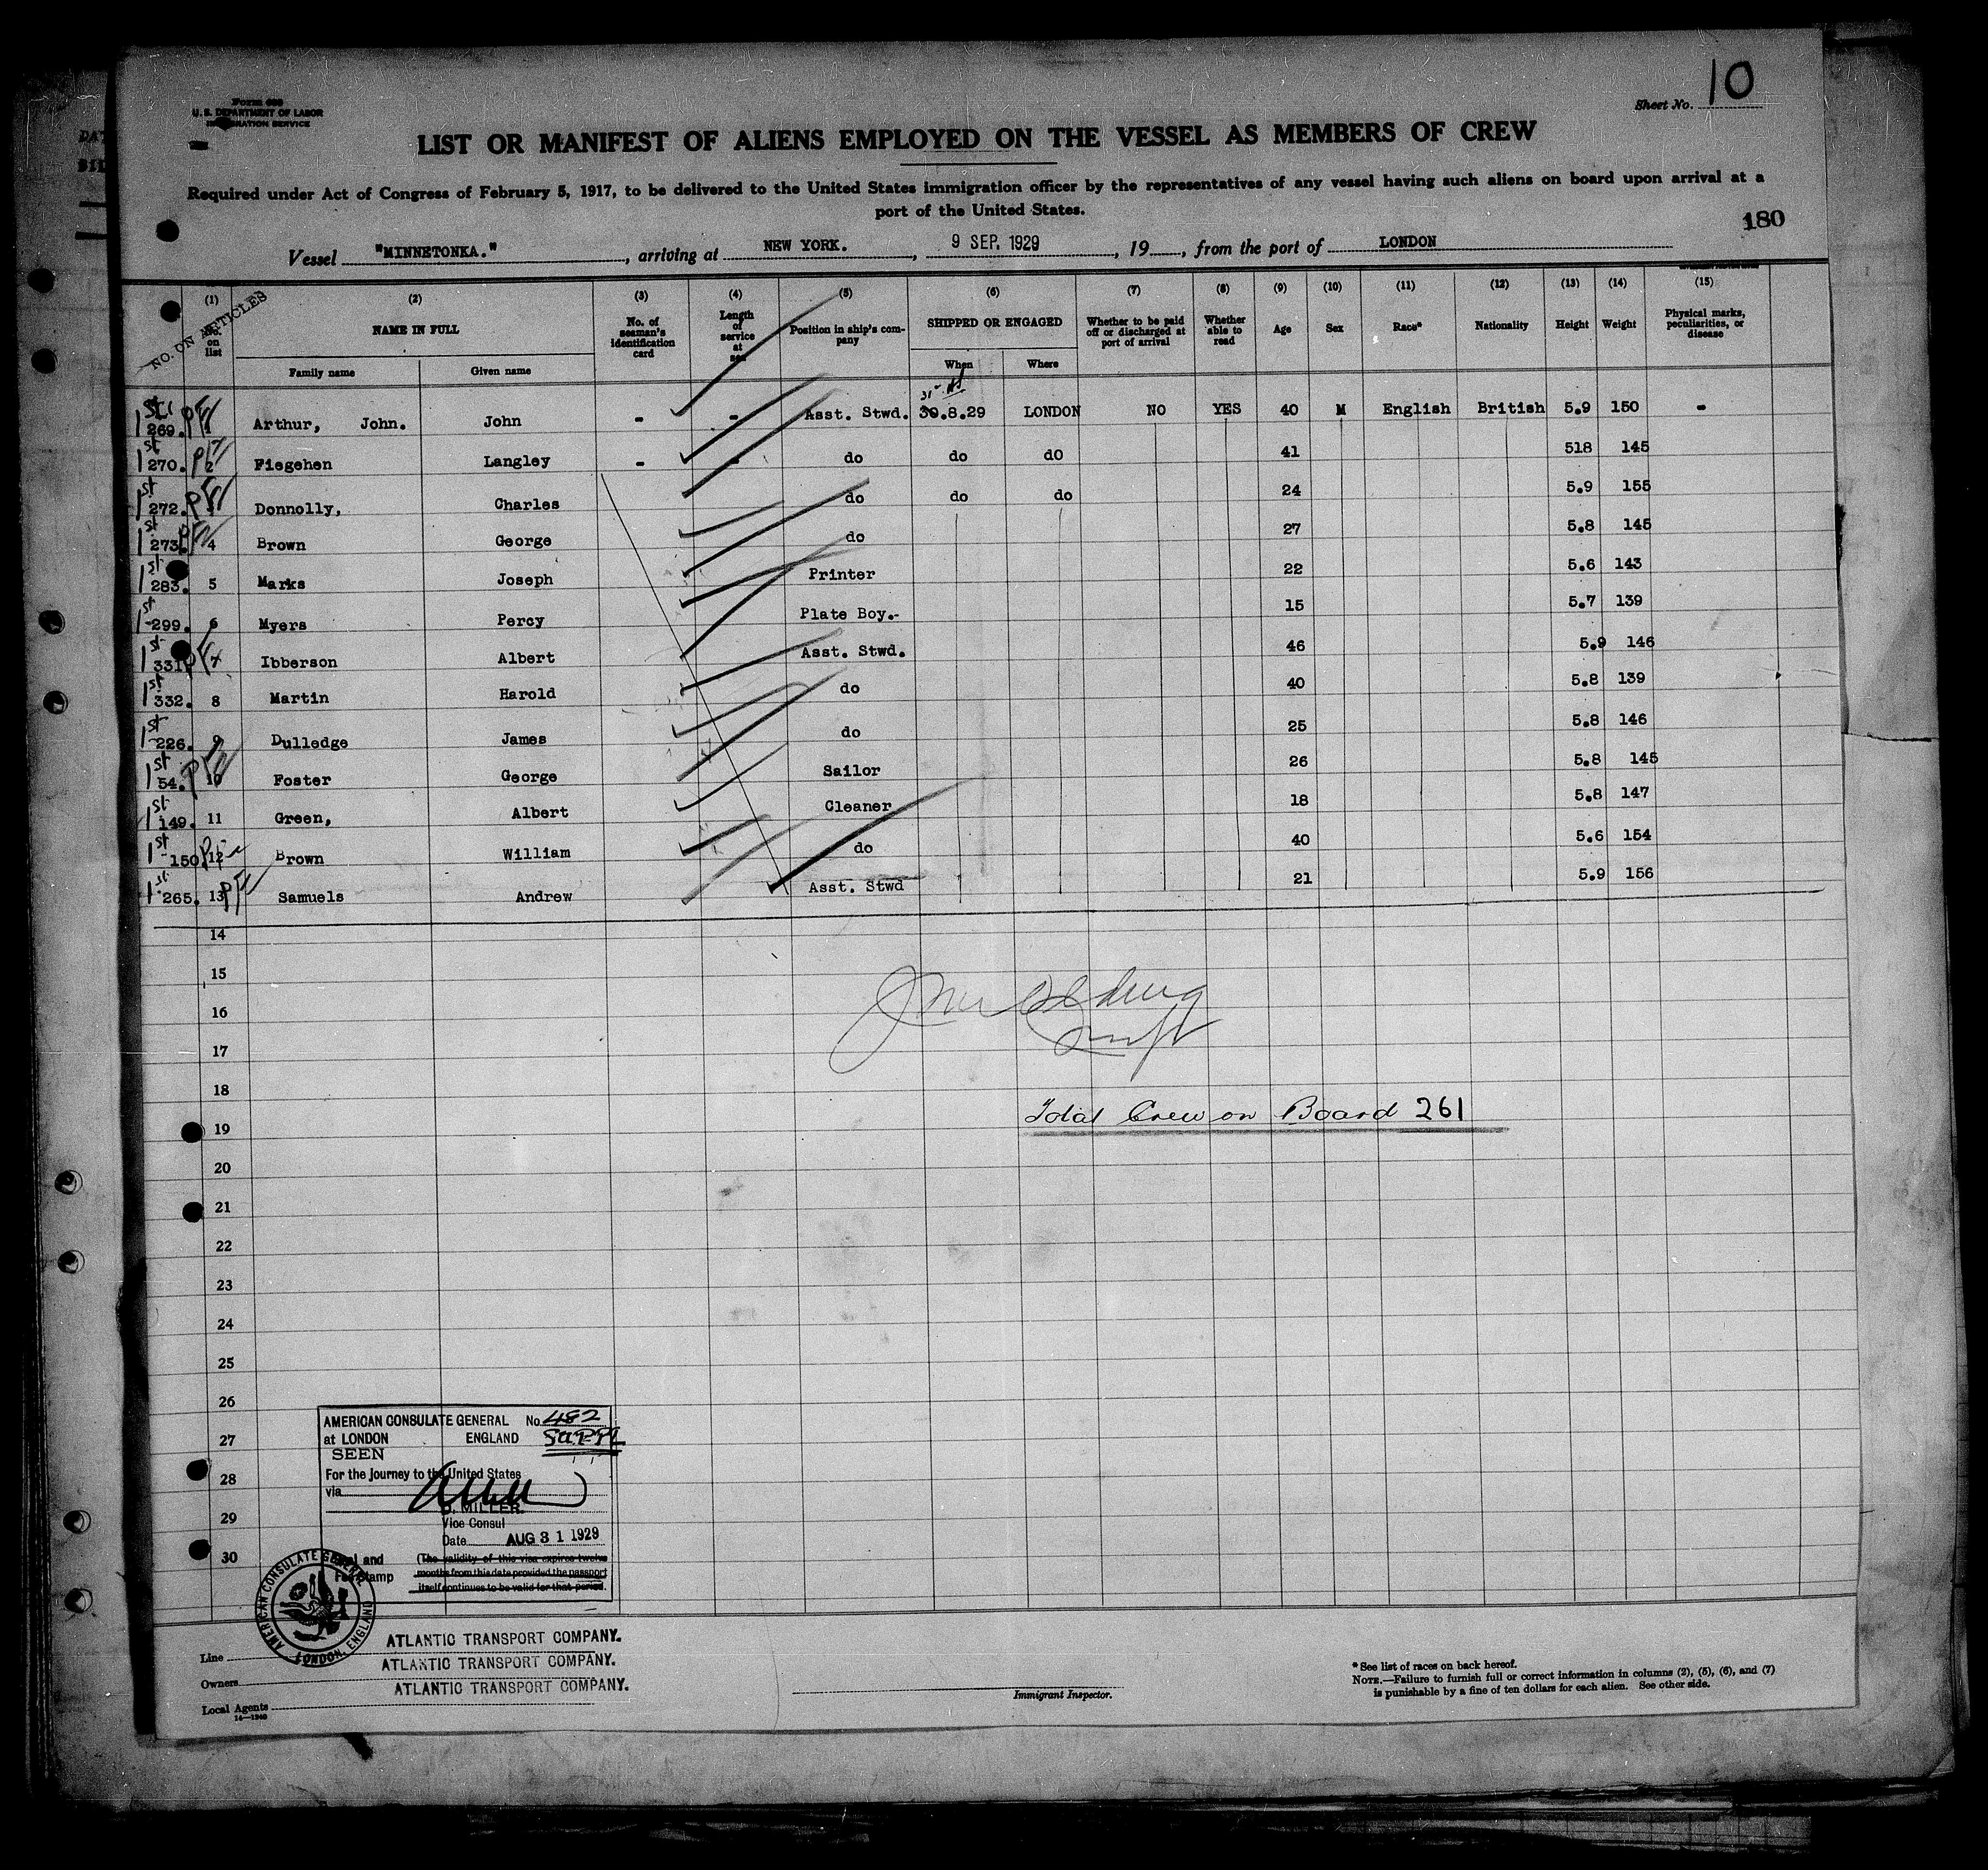 10
Sheet No.
Form 689
U. S. DEPARTMENT OF LABOR
IMMIGRATION SERVICE
LIST OR MANIFEST OF ALIENS EMPLOYED ON THE VESSEL AS MEMBERS OF CREW
Required under Act of Congress of February 5, 1917, to be delivered to the United States immigration officer by the representatives of any vessel having such aliens on board upon arrival at a
port of the United States.
180
Vessel "MINNETONKA.", arriving at NEW YORK., 9 SEP. 1929, 19, from the port of LONDON
NO. ON ARTICLES
(1) No. on list (2) NAME IN FULL Family name Given name (3) No. of seaman's identification card (4) Length of service at sea (5) Position in ship's company (6) SHIPPED OR ENGAGED When Where (7) Whether to be paid off or discharged at port of arrival (8) Whether able to read (9) Age (10) Sex (11) Race* (12) Nationality (13) Height (14) Weight (15) Physical marks, peculiarities, or disease
31st
1st 269. Arthur, John. John - - Asst. Stwd. 30.8.29 LONDON NO YES 40 M English British 5.9 150 -
1st 270. 2 Fiegehen Langley - - do do do 41 518 145
1st 272. Donnolly, Charles do do do 24 5.9 155
1st 273. 4 Brown George do 27 5.8 145
1st 283. 5 Marks Joseph Printer 22 5.6 143
1st 299. 6 Myers Percy Plate Boy.- 15 5.7 139
1st 331 7 Ibberson Albert Asst. Stwd. 46 5.9 146
1st 332. 8 Martin Harold do 40 5.8 139
1st 226. 9 Dulledge James do 25 5.8 146
1st 54. 10 Foster George Sailor 26 5.8 145
1st 149. 11 Green, Albert Cleaner 18 5.8 147
1st 150 12 Brown William do 40 5.6 154
1st 265. 13 Samuels Andrew Asst. Stwd 21 5.9 156
14
15
16
17
18
Total Crew on Board 261
19
20
21
22
23
24
25
26
27
28
29
30
AMERICAN CONSULATE GENERAL No. 482
at LONDON ENGLAND SUPPL
SEEN
For the journey to the United States
via
MILLER.
Vice Consul
Date AUG 31 1929
Seal and
Fee Stamp
(The validity of this visa expires twelve
months from this date provided the passport
itself continues to be valid for that period.
AMERICAN CONSULATE GENERAL
LONDON, ENGLAND
Line ATLANTIC TRANSPORT COMPANY.
Owners ATLANTIC TRANSPORT COMPANY.
Local Agents ATLANTIC TRANSPORT COMPANY.
14—1240
Immigrant Inspector.
* See list of races on back hereof.
NOTE.—Failure to furnish full or correct information in columns (2), (5), (6), and (7)
is punishable by a fine of ten dollars for each alien. See other side.